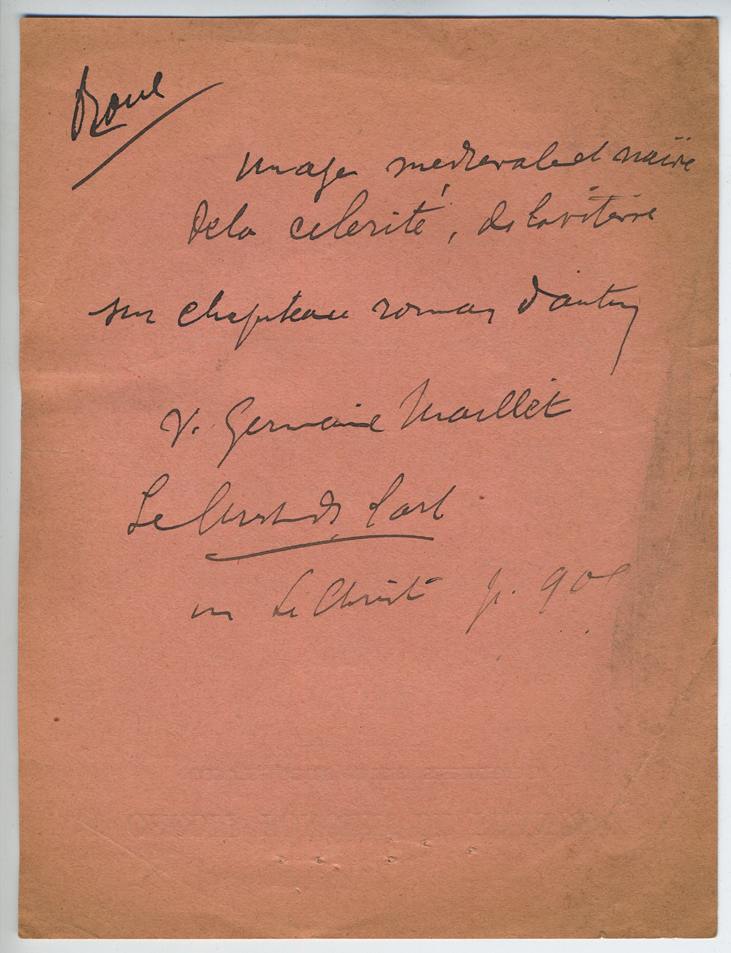 Roue
Image medievale et naïve
de la celerité, de la vitesse
sur chapiteau roman d'autun
V. Germaine Maillet
Le Christ ds l'art
in Le Christ p. 900